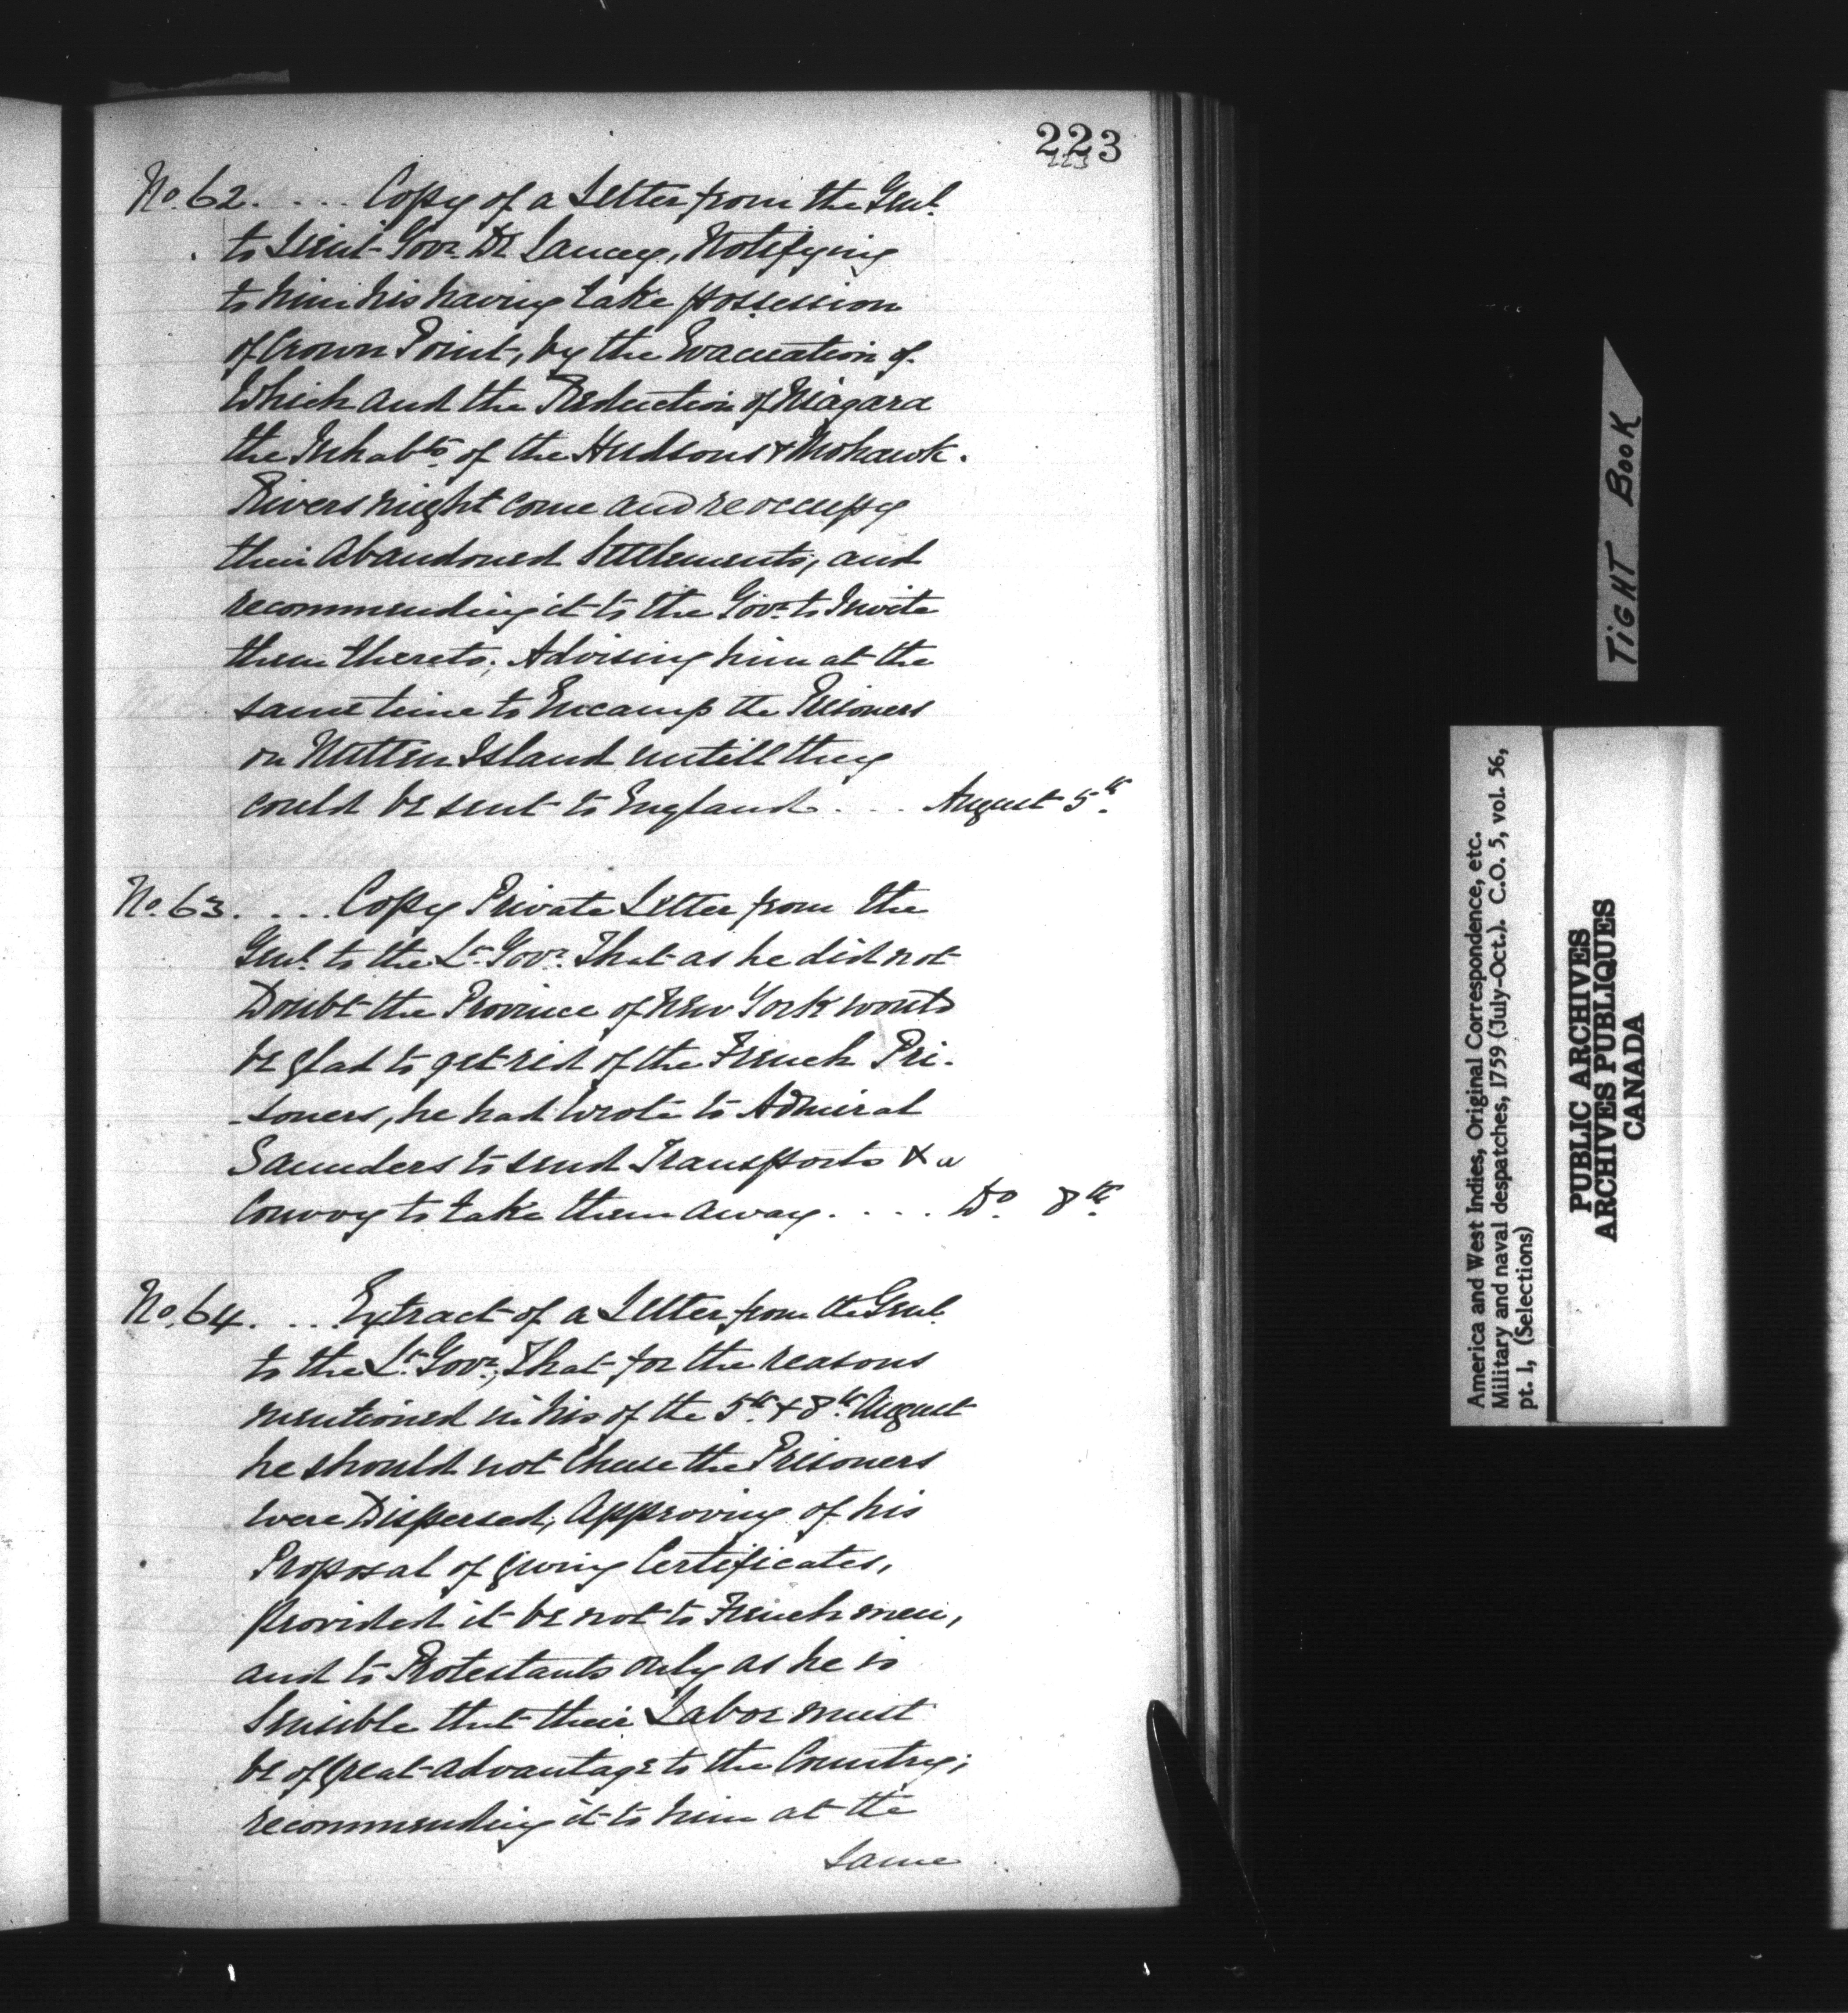 223
223
No. 62. . . . . Copy of a Letter from the Genl.
to Lieut. Govr. De Lancey, Notifying
to him his having take possession
of Crown Point, by the Evacuation of
Which and the Reduction of Niagara
the Inhabts. of the Hudsons & Mohawk.
Rivers might come and reoccupy
their Abandoned Settlements, and
recommending it to the Govr. to Invite
them thereto; Advising him at the
same time to Encamp the Prisoners
on Nutten Island untill they
could be sent to England . . . August 5th.
No. 63. . . . . Copy Private Letter from the
Genl. to the Lt. Govr. That as he did not
Doubt the Province of New York would
be glad to get rid of the French Pri-
-soners, he had wrote to Admiral
Saunders to send Transports & a
Convoy to take them away. . . . . Do. 8th.
No. 64. . . . Extract of a Letter from the Genl.
to the Lt. Govr., That for the reasons
mentioned in his of the 5th. & 8th. August
he should not Chuse the Prisoners
were Dispersed; Approving of his
Proposal of giving Certificates,
provided it be not to French men,
and to Protestants only as he is
Sensible that their Labor must
be of great advantage to the Country;
recommending it to him at the
same
TiGHT BooK
America and West Indies, Original Correspondence, etc.
Military and naval despatches, 1759 (July-Oct.). C.O. 5, vol. 56,
pt. 1, (Selections)
PUBLIC ARCHIVES
ARCHIVES PUBLIQUES
CANADA